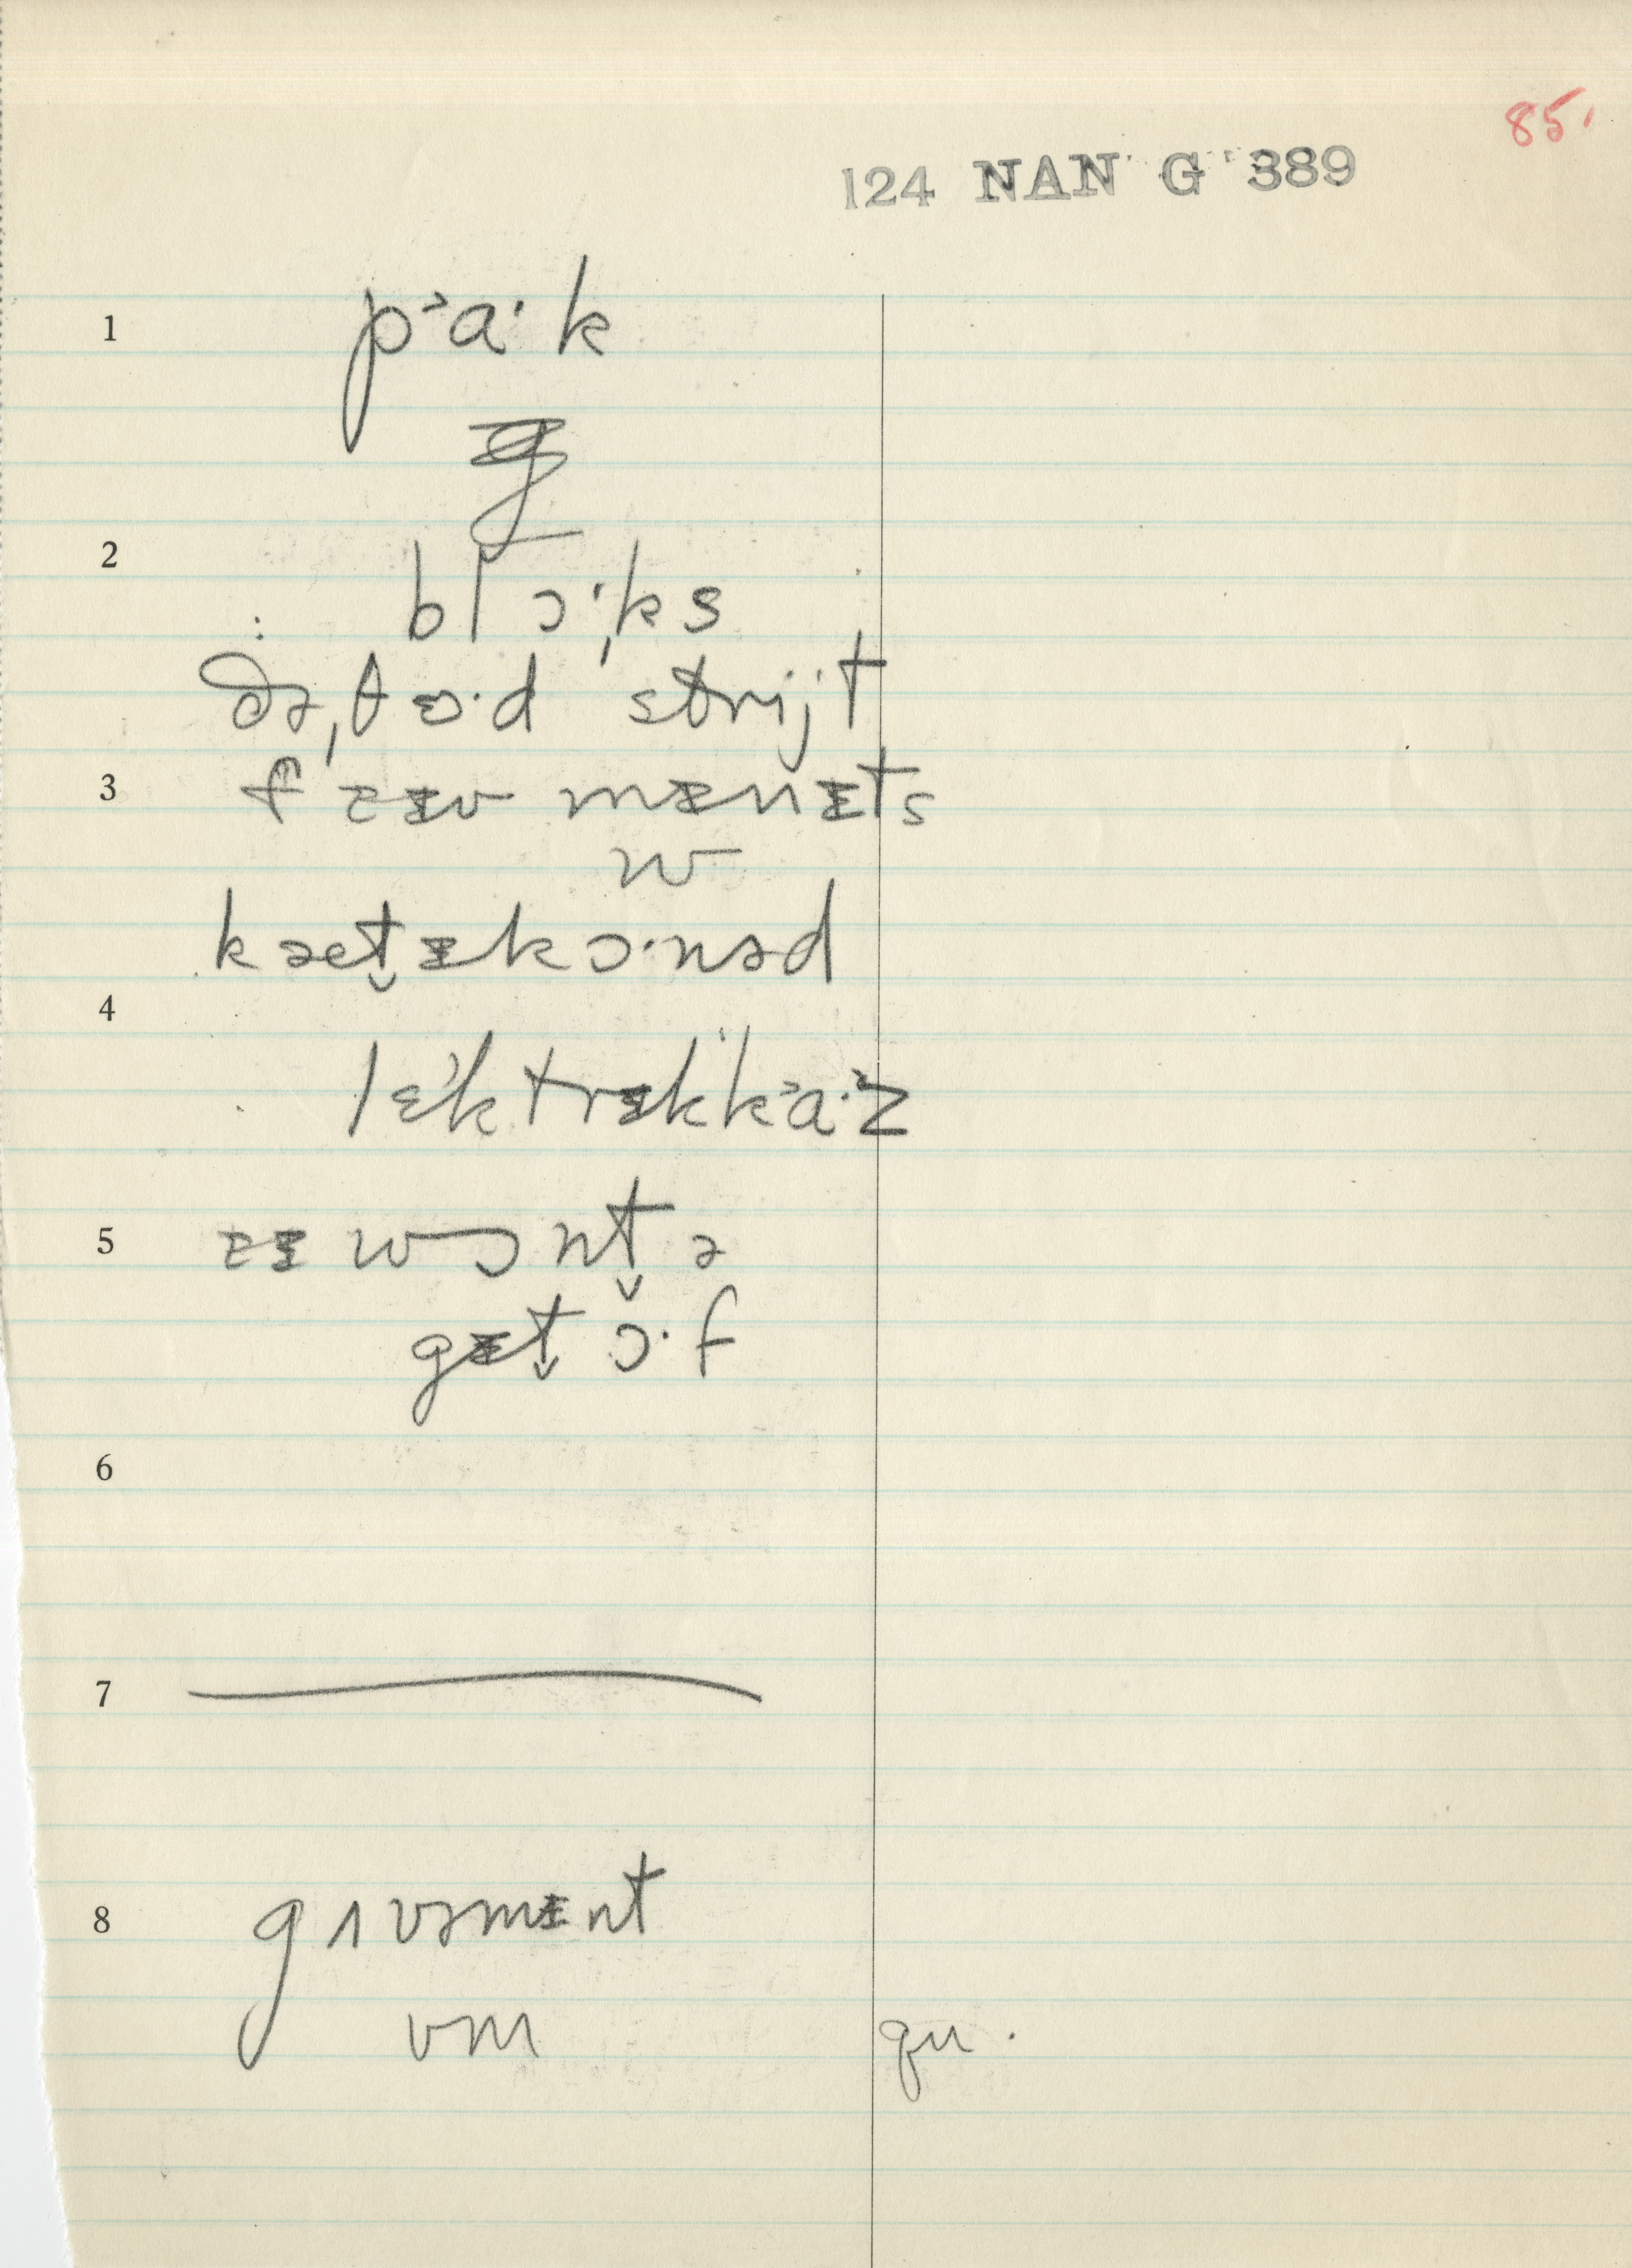 85.
124 NAN G 389
1 pʾa·k
ᵻ
2
blɔ·ks
ðə,θɜ·d strijt
3 fɛᵻv mᵻnᵻts
w
kætᵻ̬kɔ·nəd
4
lɛktrᵻkkʾa·z
5 ɛᵻ wɔnt̬ə
gᵻt̬ ɔ·f
6
7
8 gʌvəmᵻnt
vm qu.